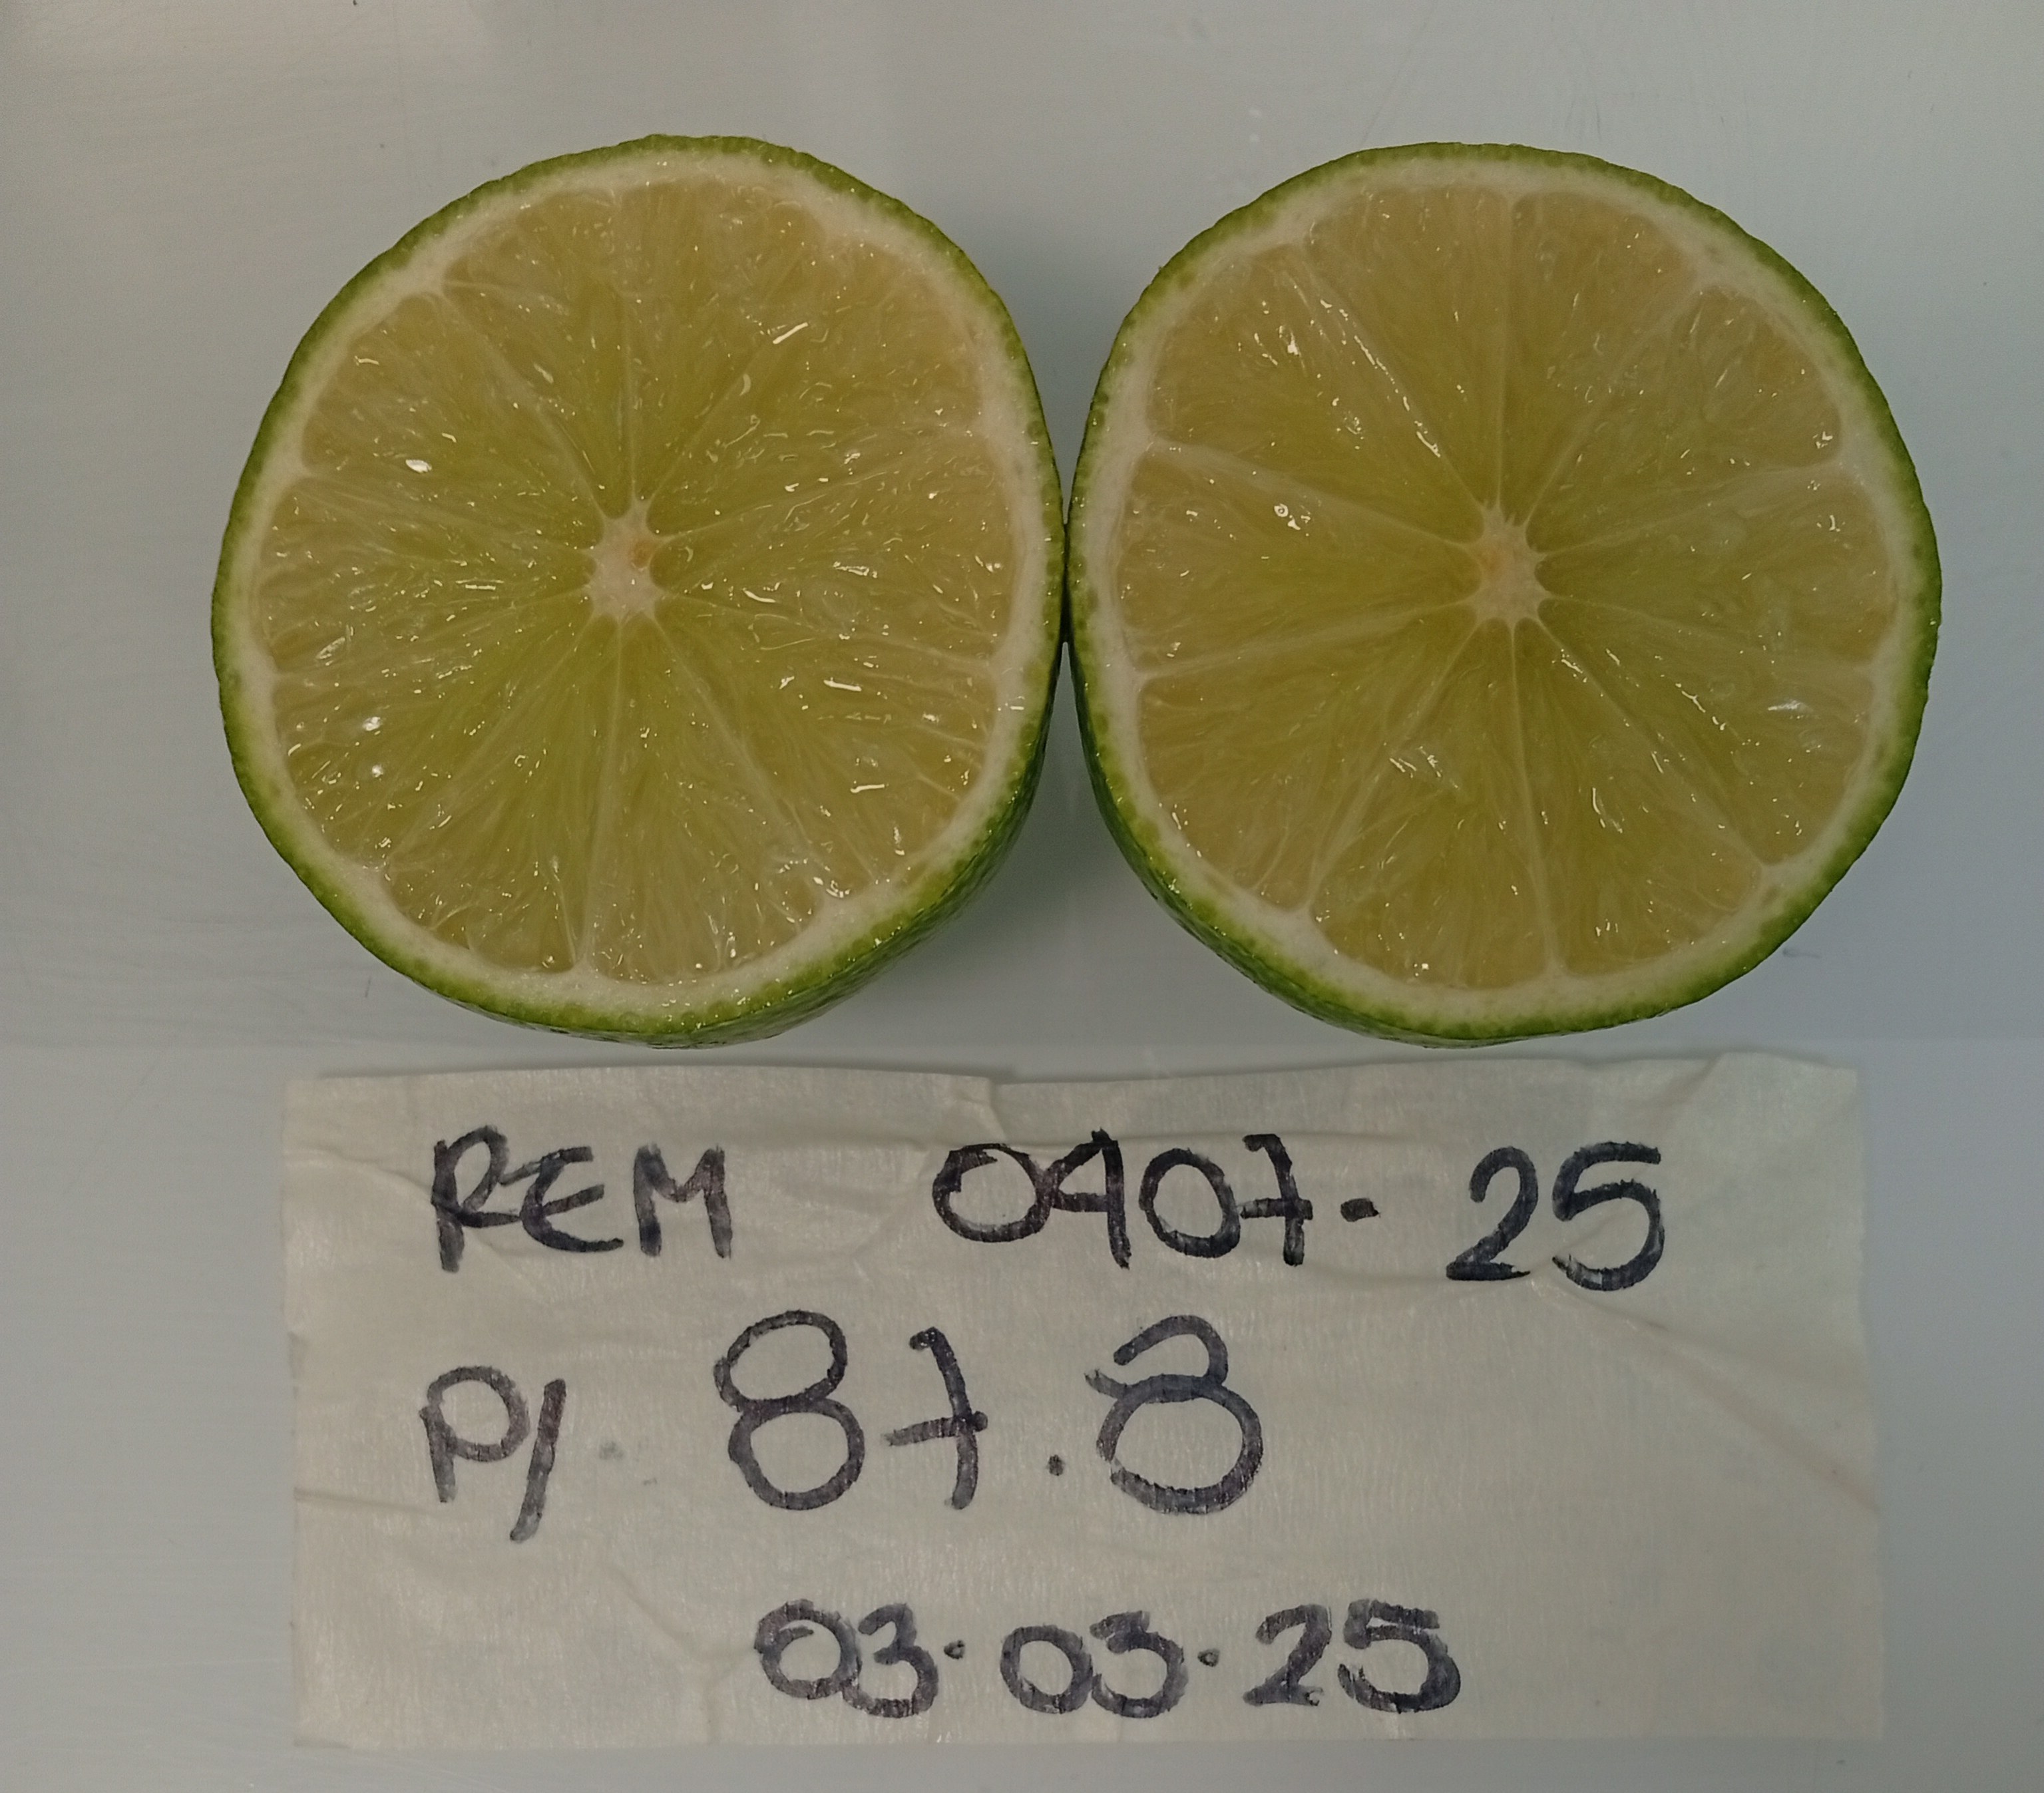 REM 0407-25
P/ 87.8
03.03.25